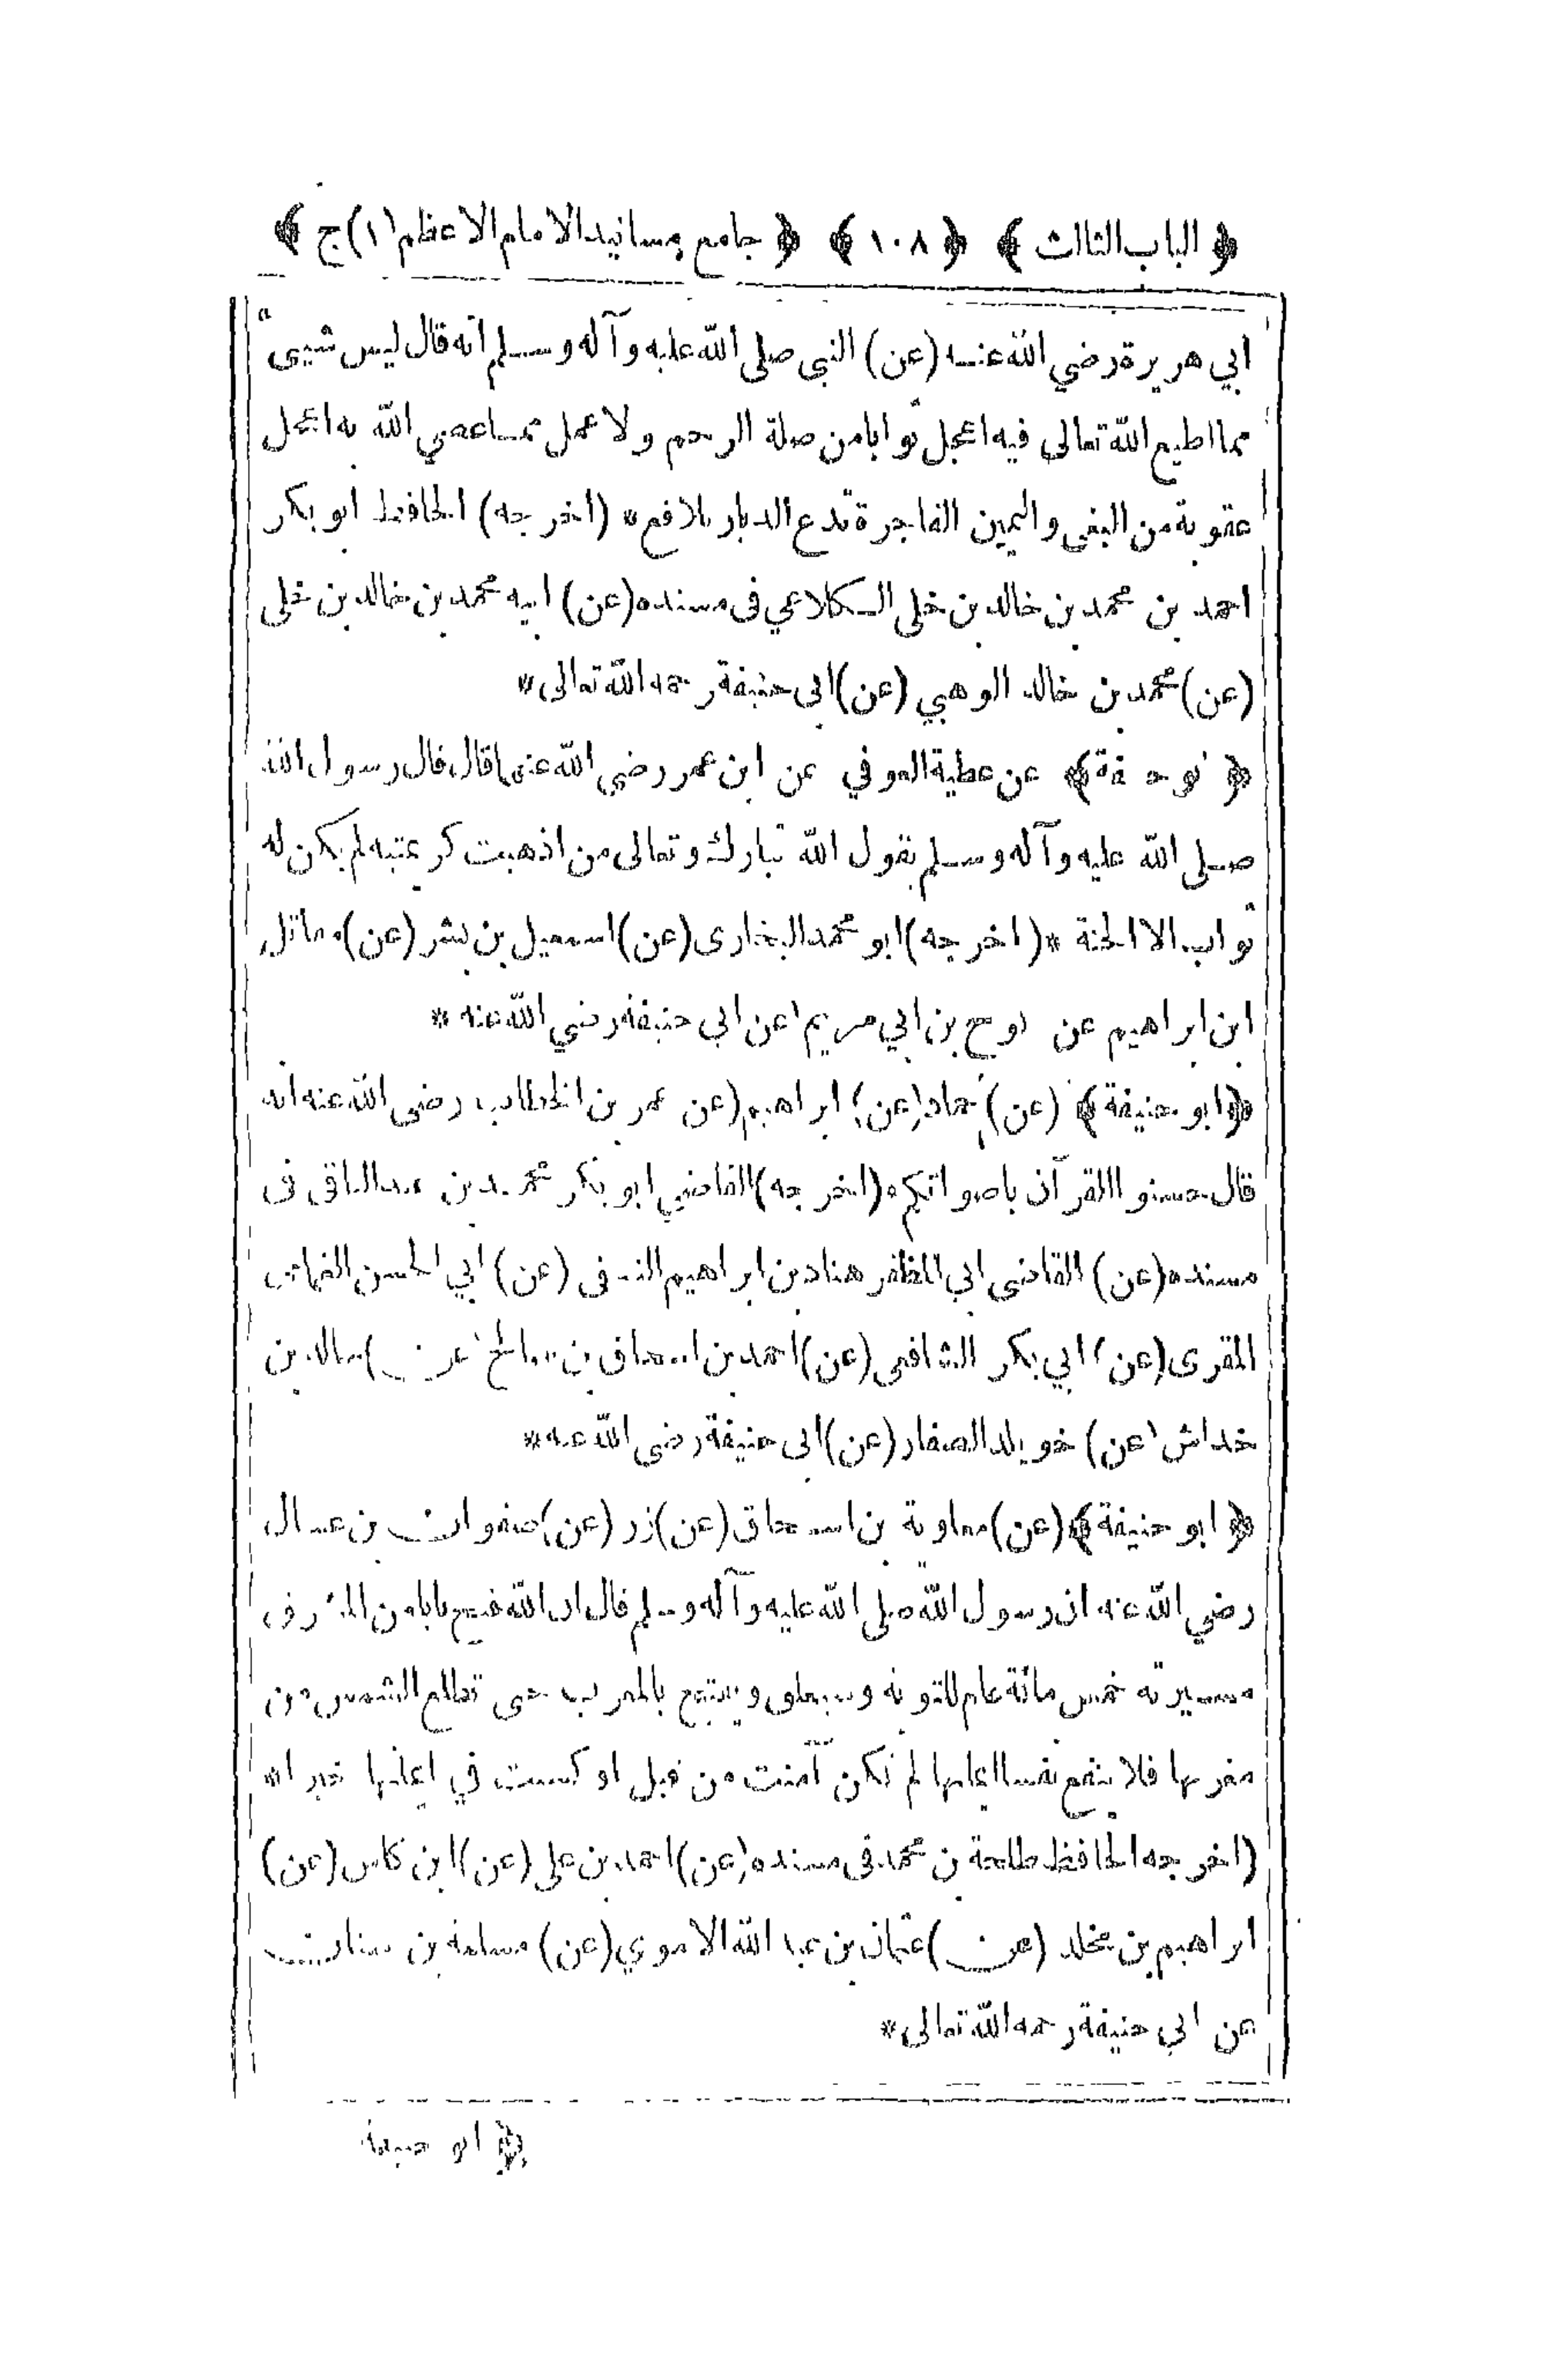 ﴿ الباب الثالث ﴾ ﴿ ١٠٨ ﴾ ﴿ جامع مسانيد الامام الاعظم (١) ج ﴾
ابي هريرة رضي الله عنه (عن) النبي صلى الله عليه وآله وسلم انه قال ليس شيئ
مما اطيع الله تعالى فيه اعجل ثوابا من صلة الرحم ولا عمل مما عصي الله به اعجل
عقوبة من البغي واليمين الفاجرة تدع الديار بلاقع * (اخرجه) الحافظ ابو بكر
احمد بن محمد بن خالد بن خلي الكلاعي في مسنده (عن) ابيه محمد بن خالد بن خلي
(عن) محمد بن خالد الوهبي (عن) ابى حنيفة رحمه الله تعالى *
عن عطية العوفي عن ابن عمر رضي الله عنهما قال قال رسول الله
صلى الله عليه وآله وسلم يقول الله تبارك وتعالى من اذهبت كريمتيه لم يكن له
ثواب الا الجنة * (اخرجه) ابو محمد البخارى (عن) اسمعيل بن بشر (عن) مقاتل
ابن ابراهيم عن نوح بن ابي مريم (عن ابي حنيفة رضي الله عنه *
﴿ابو حنيفة﴾ (عن) حماد (عن) ابراهيم (عن عمر بن الخطاب رضى الله عنه انه
قال حسنوا القرآن باصواتكم * (اخرجه) القاضي ابو بكر محمد بن عبد الباقى فى
مسنده (عن) القاضى ابي المظفر هناد بن ابراهيم النسفى (عن) ابي الحسن
المقرى (عن) ابي بكر الشافعى (عن) احمد بن اسحاق بن صالح (عن) خالد بن
خداش (عن) خويلد الصفار (عن) ابى حنيفة رضى الله عنه *
﴿ ابو حنيفة ﴾ (عن) معاوية بن اسحاق (عن) زر (عن) صفوان بن عسال
رضي الله عنه ان رسول الله صلى الله عليه وآله وسلم قال ان الله فتح بابا من المشرق
مسيرته خمس مائة عام للتوبة ويفتح بالمغرب حتى تطلع الشمس من
مغربها فلا ينفع نفسا ايمانها لم تكن آمنت من قبل او كسبت في ايمانها خيرا *
(اخرجه) الحافظ طلحة بن محمد فى مسنده (عن) احمد بن على (عن) ابن كاس (عن)
ابراهيم بن مخلد (عن) عثمان بن عبد الله الاموي (عن) مسلمة بن
عن ابي حنيفة رحمه الله تعالى *
﴿ ابو حنيفة